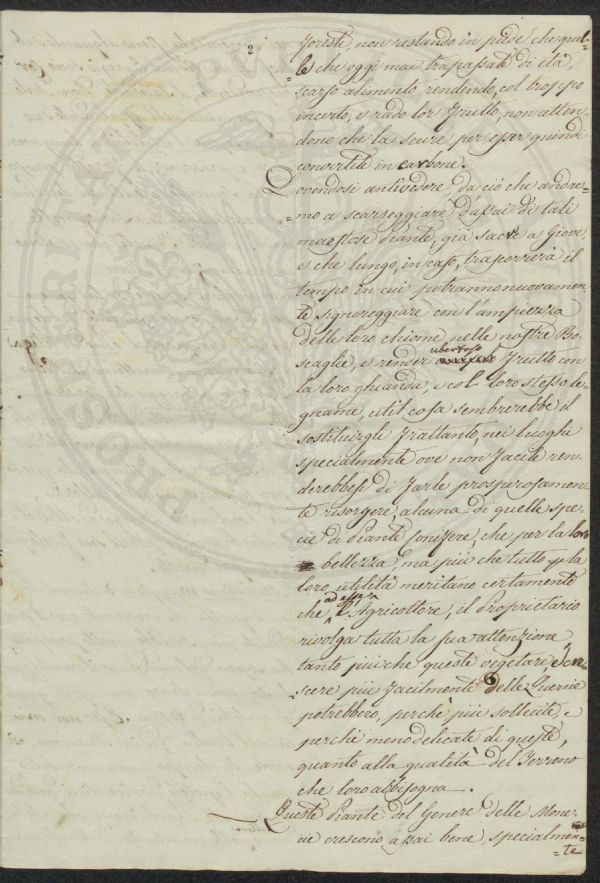 2
foreste, non restando in piede che quel=
=le che oggi mai trapassate di età,
scarso alimento rendendo, col troppo
incerto, e rado lor frutto, non atten=
dono che la scure per esser quindi
convertite in carbone.
Dovendosi antivedere, da ciò che andre=
=mo a scarseggiare d'assai di tali
maestose Piante, già sacre a Giove,
e che lungo, in caso, trascorrerà il
tempo in cui potranno nuovamen=
te signoreggiare con l'ampiezza
delle loro chiome nelle nostre Bo=
scaglie, e render ubertoso frutto con
la loro ghianda, e col loro stesso le=
gname, util cosa sembrerebbe il
sostituirgli frattanto, nei luoghi
specialmente ove non facile ren=
derebbesi di farle prosperosamen=
te risorgere, alcuna di quelle spe=
cie di Piante Conifere, che per la loro
bellezza, ma più che tutto per la
loro utilità meritano certamente
che ad esse l'Agricoltore, il Proprietario
rivolga tutta la sua attenzione
tanto più che queste vegetare, e cre=
scere più facilmente delle Quercie
potrebbero, perchè più sollecite, e
perchè meno delicate di queste,
quanto alla qualità del Terreno
che loro abbisogna.
Queste Piante del Genere delle Mone=
cie crescono assai bene, specialmen=
=te
PROSPERITATI PUBLICAE